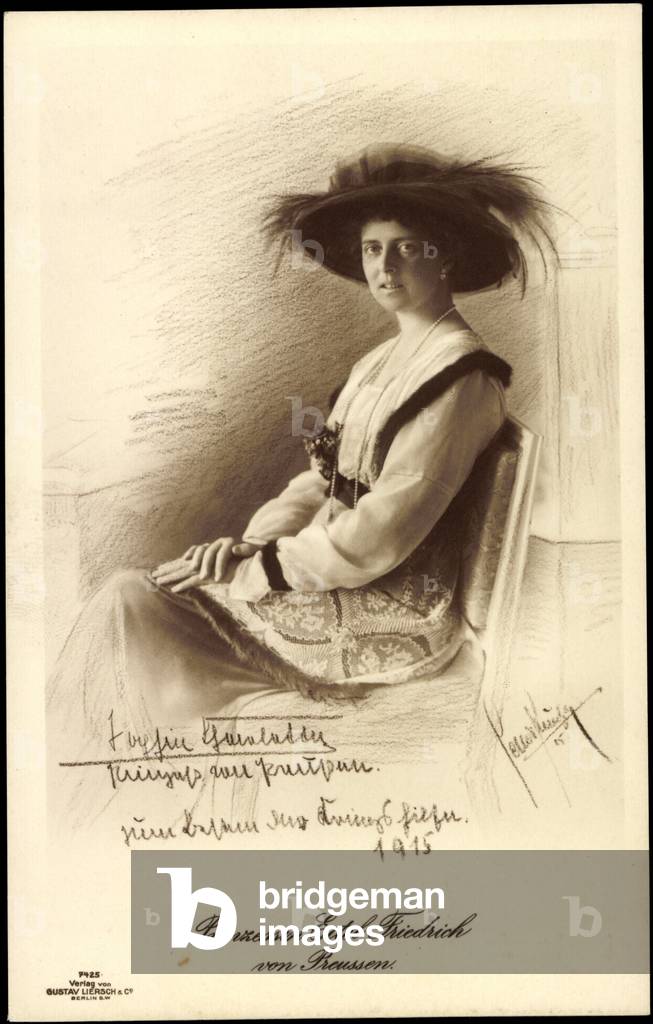 Sophie Charlotte
Prinzess von Preussen.
zum Besten der Kriegshilfe.
1915
15
Prinzessin Eitel Friedrich
von Preussen.
bridgeman
images
7425
Verlag von
GUSTAV LIERSCH & Co
BERLIN S.W